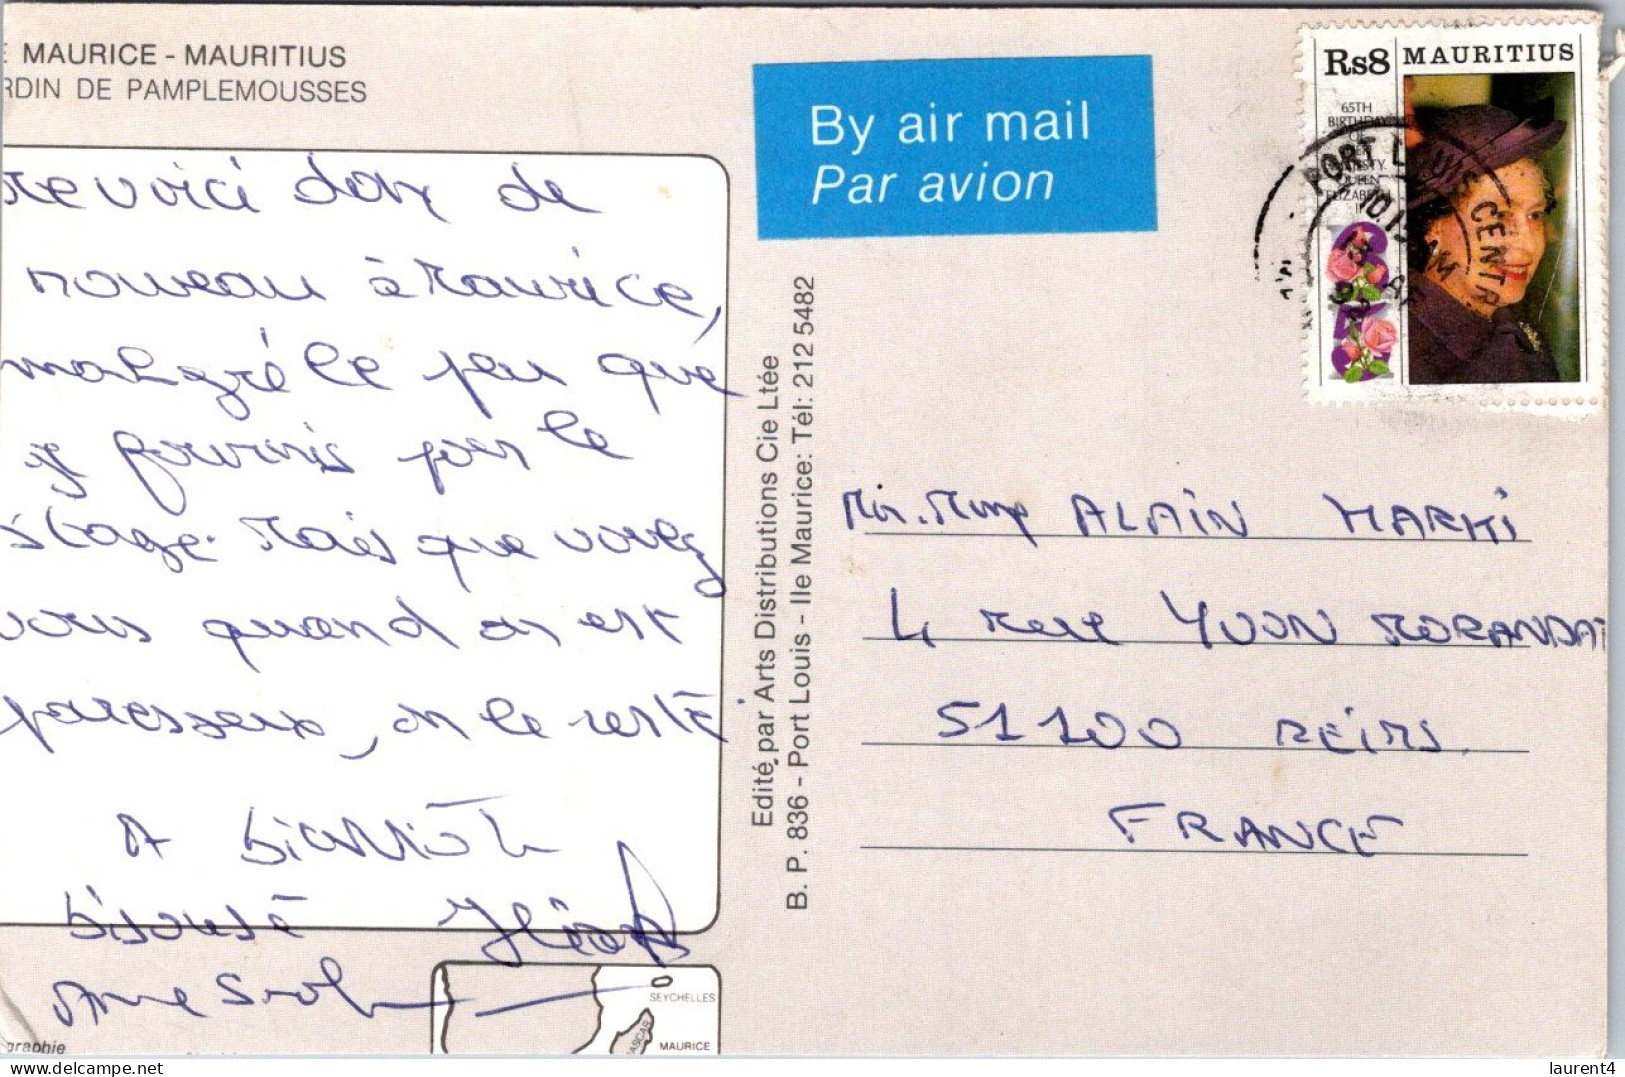 E MAURICE - MAURITIUS
RDIN DE PAMPLEMOUSSES
me voici donc de
nouveau à Maurice,
malgré le peu que
je fournis pour le
stage. Mais que voulez
vous quand on est
paresseux, on le reste
A bientôt
Bisouse
graphie
SEYCHELLES
ASCAR
MAURICE
Edité par Arts Distributions Cie Ltée
B. P. 836 - Port Louis - Ile Maurice: Tél: 212 5482
By air mail
Par avion
Rs8 MAURITIUS
65TH
BIRTHDAY
OF
HER
MAJESTY
QUEEN
ELIZABETH
II
PORT LOUIS CENTR.
Mr. Mme ALAIN MARKI
4 rue YVON MORANDAT
51100 REIMS
FRANCE
laurent4